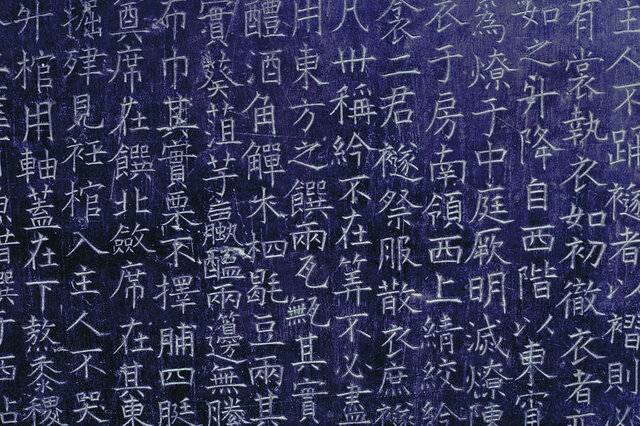 主人不踊襚者以褶則必
有裳執衣如初徹衣者亦
如之升降自西階以東宵
爲燎于中庭厥明滅燎陳
衣于房南領西上綪絞紟
衾二君襚祭服散衣庶襚
凡卅稱紟不在筭不必盡
用東方之饌兩瓦甒其實
醴酒角觶木柶毼豆兩其
實葵菹芋蠃醢兩籩無縢
布巾其實栗不擇脯四脡
奠席在饌北斂席在其東
掘肂見衽棺入主人不哭
升棺用軸蓋在下熬黍稷